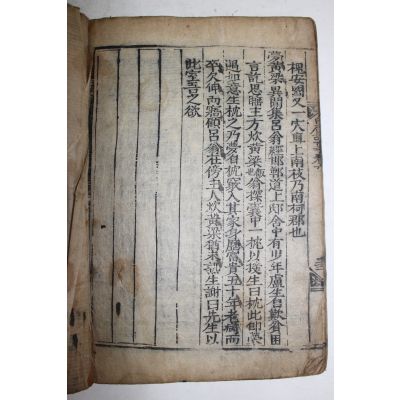 槐安國又一穴直上南枝乃南柯郡也
夢黃梁異聞集呂翁經邯鄲道上邸舍中有少年盧生自歎貧困
言訖思睡主方炊黃梁翁探囊中一枕以授生曰枕此即榮
遇如意生枕之乃夢自枕竅入其家身歷富貴五十年老病而
卒欠伸而寤顧呂翁在傍主人炊黃梁猶未熟生謝曰先生以
此窒吾之欲